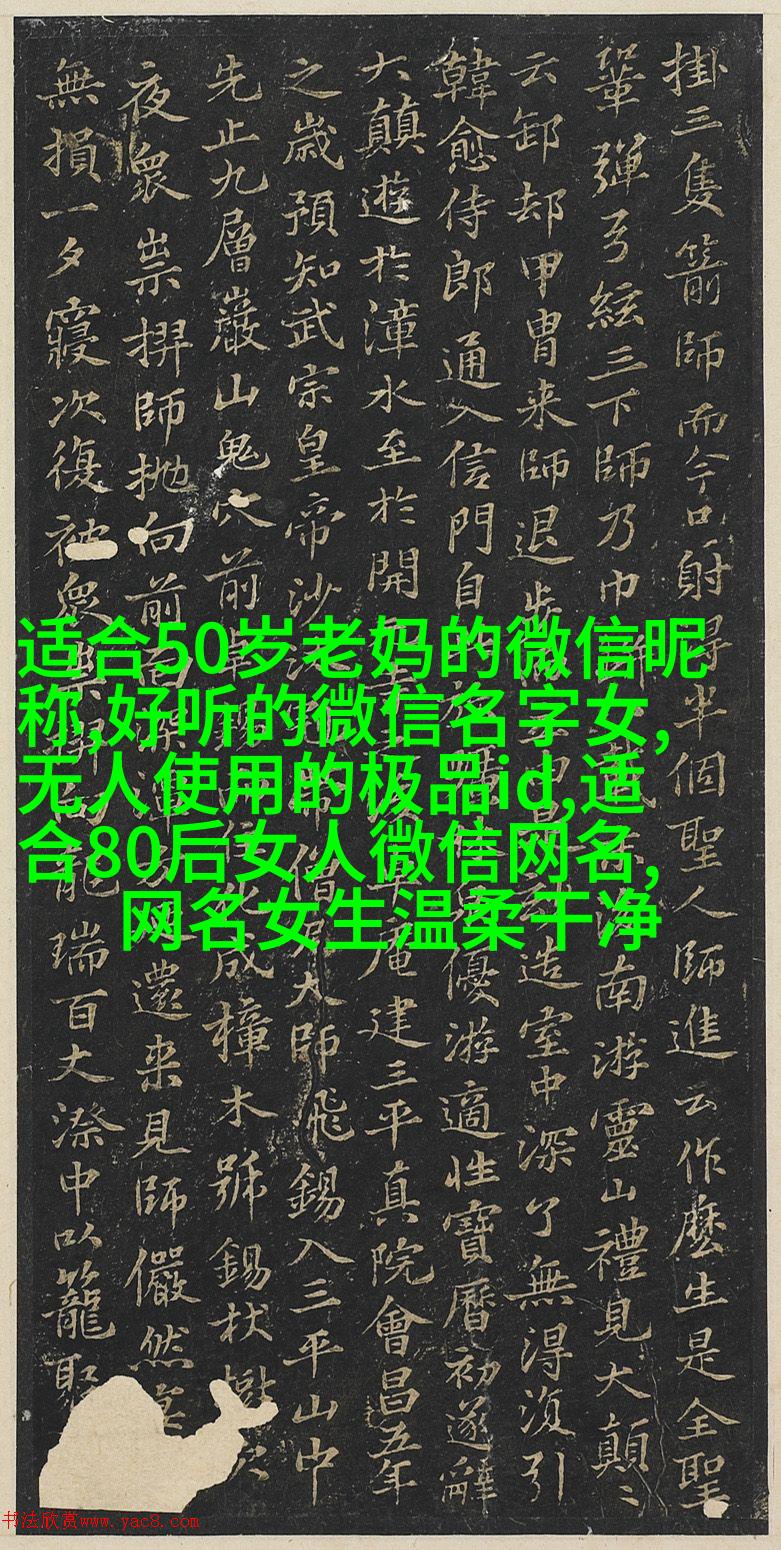 掛三隻箭師而今只射得半個聖人師進云作麼生是全聖
鞏彈弓絃三下師乃巾
南游靈山禮見大顛〻
云卸却甲胄来師退步
造室中深了無得湏引
韓愈侍郎通入信門自
優游適性寶曆初遂辭
大顛遊於漳水至於開
建三平真院會昌五年
之歳預知武宗皇帝沙
大師飛錫入三平山中
先止九層巖山鬼穴前
成樟木號錫杖
夜衆祟掑師抛向前
還来見師儼然
無損一夕寢次復被衆
能瑞百丈漈中以籠聚
适合50岁老妈的微信昵
称,好听的微信名字女,
无人使用的极品id,适
合80后女人微信网名,
网名女生温柔干净
书法欣赏www.yac8.com